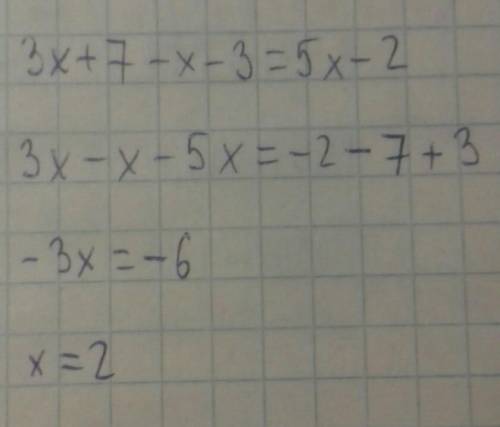 3x+7-x-3=5x-2
3x-x-5x=-2-7+3
-3x=-6
x=2